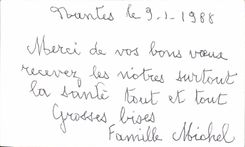 Nantes le 9-1-1988
Merci de vos bons vœux
recevez les nôtres surtout
la santé tout et tout
Grosses bises
Famille Michel